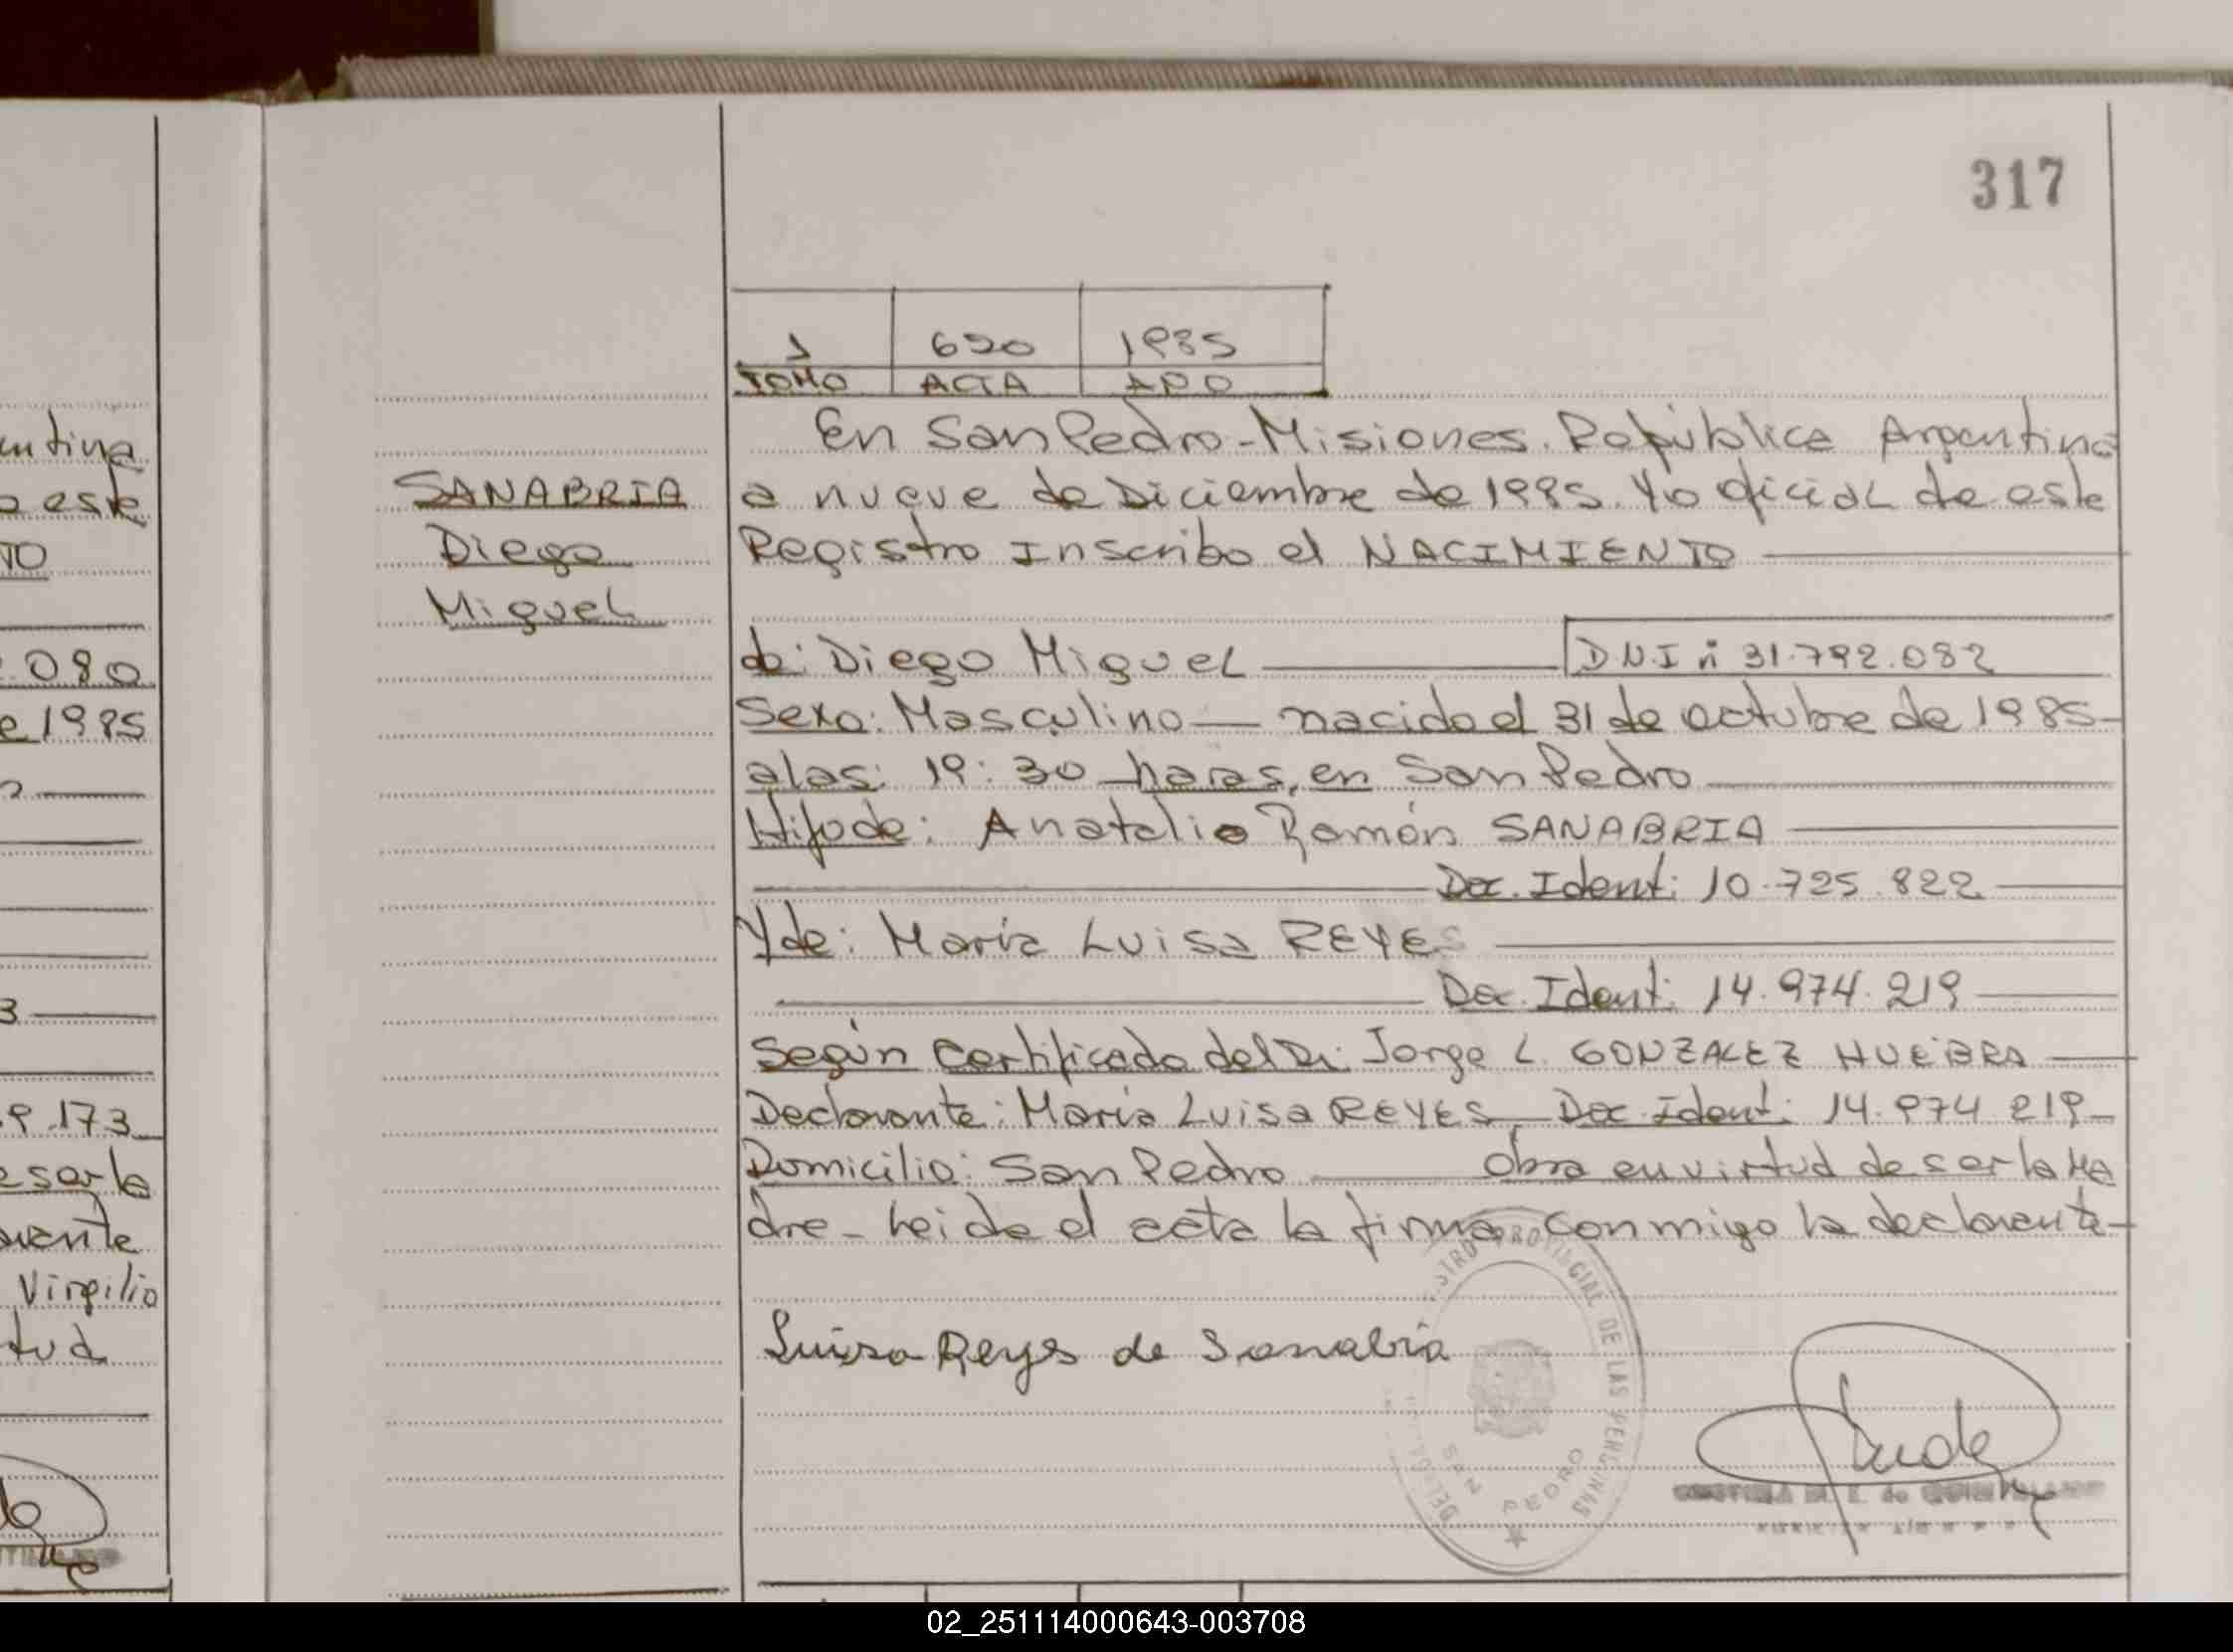 317
entina
o este
TO
.080
e 1985
3
9.173
e ser la
arante
Virgilio
tud
SANABRIA
Diego
Miguel
650 1985
TOMO ACTA AÑO
En San Pedro - Misiones. República Argentina
a nueve de Diciembre de 1985. Yo oficial de este
Registro Inscribo el NACIMIENTO
de: Diego Miguel D.N.I nº 31.792.082
Sexo: Masculino nacido el 31 de octubre de 1985
a las: 19:30 horas, en San Pedro
Hijo de: Anatalio Ramón SANABRIA
Doc. Ident: 10.725.822
Y de: María Luisa REYES
Doc. Ident: 14.974.219
Según Certificado del Dr. Jorge L. GONZALEZ HUEBRA
Declarante: María Luisa REYES Doc. Ident: 14.974 219
Domicilio: San Pedro Obra en virtud de ser la Ma
dre - leida el acta la firma conmigo la declarante
Luisa Reyes de Sanabria
REGISTRO PROVINCIAL DE LAS PERSONAS
SAN PEDRO
02_251114000643-003708